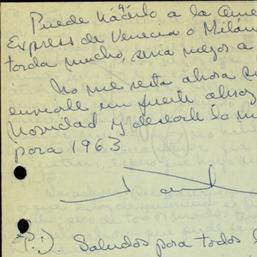 Puede hacerlo a la Ame
Express de Venecia o Milán
tarda mucho, sería mejor a
No me resta ahora
enviarle un fuerte abraz
Navidad y desearle lo
para 1963
P.D. Saludos para todos